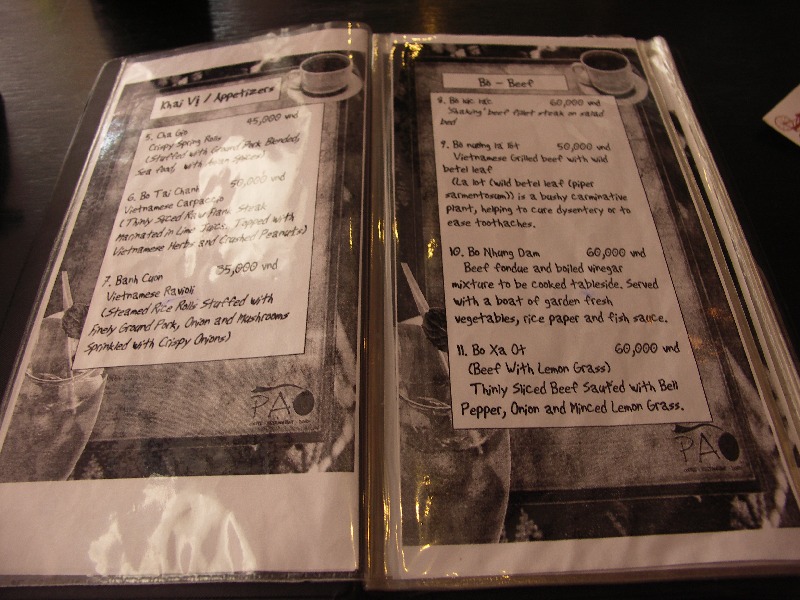 Khai Vị / Appetizers
5. Cha Gio 45,000 vnd
Crispy Spring Rolls
(Stuffed with Ground Pork Blended,
Sea food, with Asian Spices)
6. Bo Tai Chanh 50,000 vnd
Vietnamese Carpaccio
(Thinly Sliced Raw Flank Steak
Marinated in Lime Juice, Topped with
Vietnamese Herbs and Crushed Peanuts)
7. Banh Cuon 35,000 vnd
Vietnamese Ravioli
(Steamed Rice Rolls Stuffed with
Finely Ground Pork, Onion and Mushrooms
Sprinkled with Crispy Onions)
PAO
Bò - Beef
8. Bo luc lac 60,000 vnd
"Shaking" beef fillet steak on salad
bed
9. Bo nuong la lot 50,000 vnd
Vietnamese Grilled beef with wild
betel leaf
(La lot (wild betel leaf (piper
sarmentosum)) is a bushy carminative
plant, helping to cure dysentery or to
ease toothaches.
10. Bo Nhung Dam 60,000 vnd
Beef fondue and boiled vinegar
mixture to be cooked tableside. Served
with a boat of garden fresh
vegetables, rice paper and fish sauce.
11. Bo Xa Ot 60,000 vnd
(Beef With Lemon Grass)
Thinly Sliced Beef Sauted with Bell
Pepper, Onion and Minced Lemon Grass.
PAO